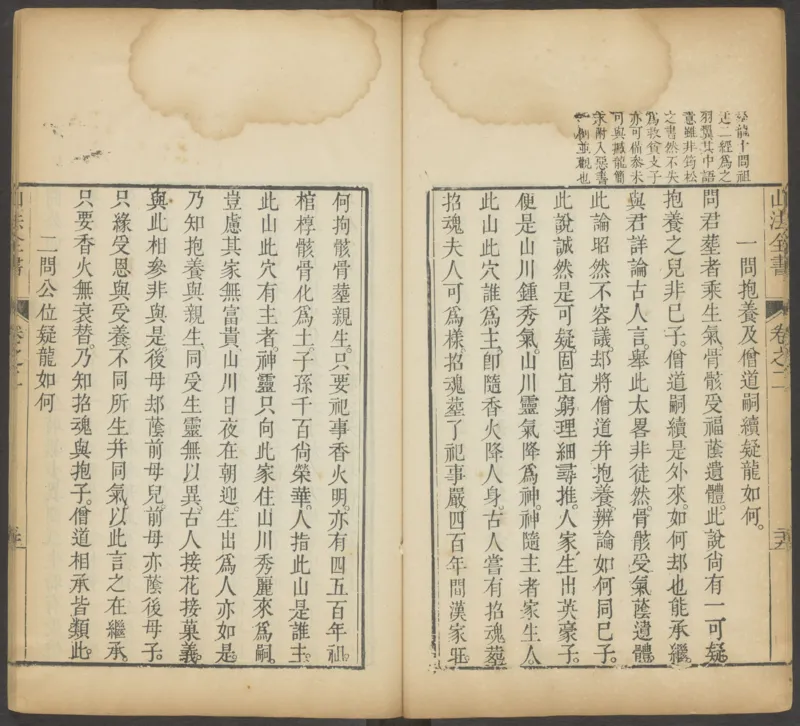 疑龍十問祖
述二經爲之
羽翼其中語
意雖非筠松
之書然不失
爲救貧支子
亦可備參未
可與撼龍簡
求附入惡書
一例並觀也
山法全書
卷之二
一問抱養及僧道嗣續疑龍如何。
問君葬者乘生氣骨骸受福蔭遺體。此說尚有一可疑。
抱養之兒非已子。僧道嗣續是外來。如何却也能承繼。
與君詳論古人言。舉此太畧非徒然。骨骸受氣蔭遺體。
此論昭然不容議却將僧道幷抱養。辨論如何同已子。
此說誠然是可疑。固宜窮理細尋推。人家生出英豪子。
便是山川鍾秀氣。山川靈氣降爲神。神隨主者家生人
此山此穴誰爲主。卽隨香火降人身。古人嘗有招魂葬
招魂夫人可爲樣。招魂葬了祀事嚴四百年間漢家旺。
何拘骸骨葬親生。只要祀事香火明。亦有四五百年祖。
棺椁骸骨化爲土。子孫千百尙榮華。人指此山是誰主。
此山此穴有主者。神靈只向此家住山川秀麗來爲嗣。
豈慮其家無富貴。山川日夜在朝迎。生出爲人亦如是。
乃知抱養與親生。同受生靈無以異。古人接花接菓義。
與此相參非與是。後母却蔭前母兒前母亦蔭後母子。
只緣受恩與受養不同所生幷同氣以此言之在繼承。
只要香火無衰替。乃知招魂與抱子。僧道相承皆類此。
二問公位疑龍如何
山法全書
卷之二